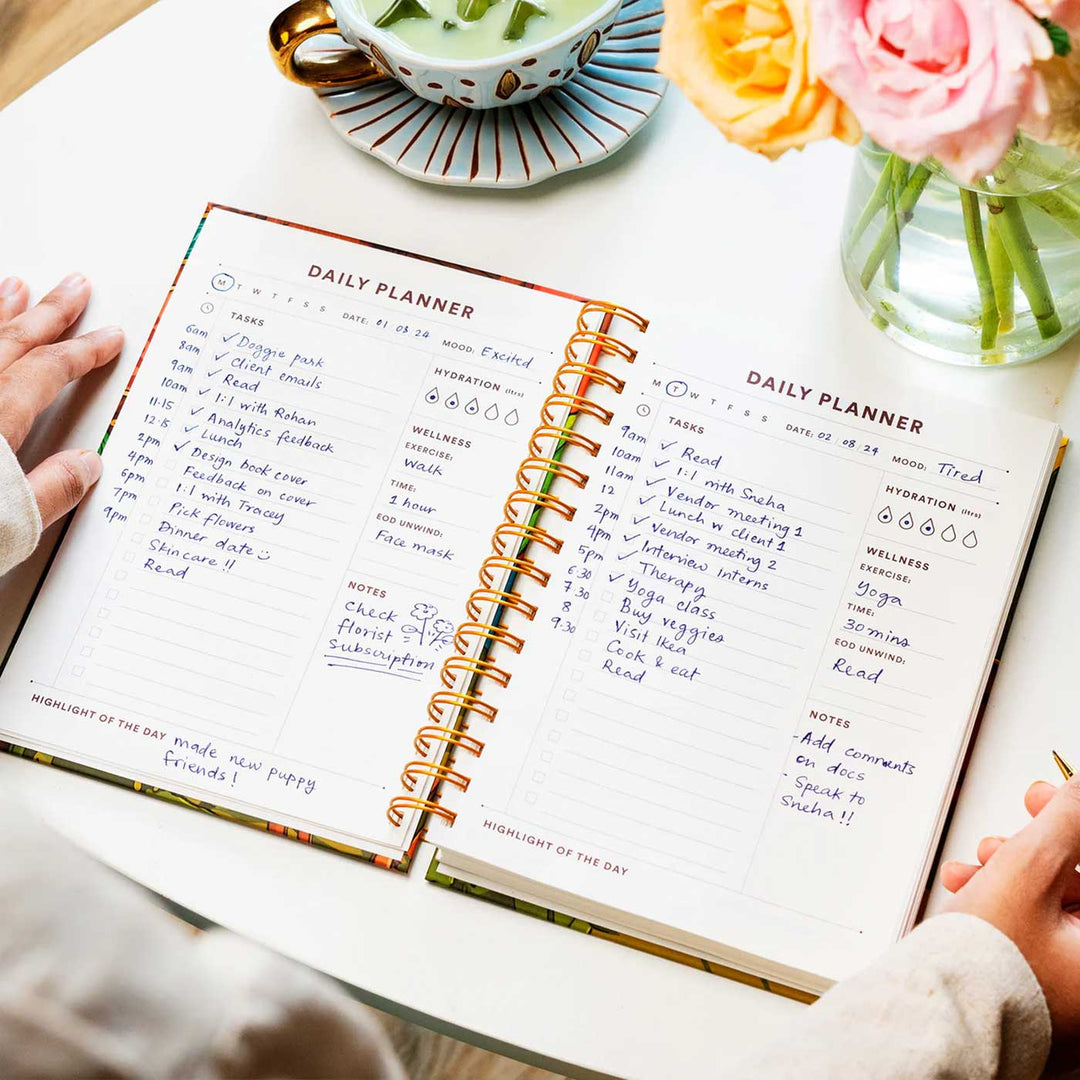 DAILY PLANNER
M T W T F S S DATE: 01 08 24 MOOD: Excited
TASKS
6am ✓ Doggie park
8am ✓ Client emails
9am ✓ Read
10am ✓ 1:1 with Rohan
11.15 ✓ Analytics feedback
12.15 ✓ Lunch
2pm ✓ Design book cover
4pm Feedback on cover
6pm 1:1 with Tracey
7pm Pick flowers
9pm Dinner date
Skincare !!
Read
HYDRATION (ltrs)
WELLNESS
EXERCISE:
Walk
TIME:
1 hour
EOD UNWIND:
Face mask
NOTES
Check
florist
subscription
HIGHLIGHT OF THE DAY made new puppy
friends!
DAILY PLANNER
M T W T F S S DATE: 02 08 24 MOOD: Tired
TASKS
9am ✓ Read
10am ✓ 1:1 with Sneha
11am ✓ Vendor meeting 1
12 ✓ Lunch w client 1
2pm ✓ Vendor meeting 2
4pm ✓ Interview interns
5pm ✓ Therapy
6:30 ✓ Yoga class
7.30 Buy veggies
8 Visit Ikea
9:30 Cook & eat
Read
HYDRATION (ltrs)
WELLNESS
EXERCISE:
Yoga
TIME:
30 mins
EOD UNWIND:
Read
NOTES
-Add comments
on docs
- Speak to
Sneha!!
HIGHLIGHT OF THE DAY